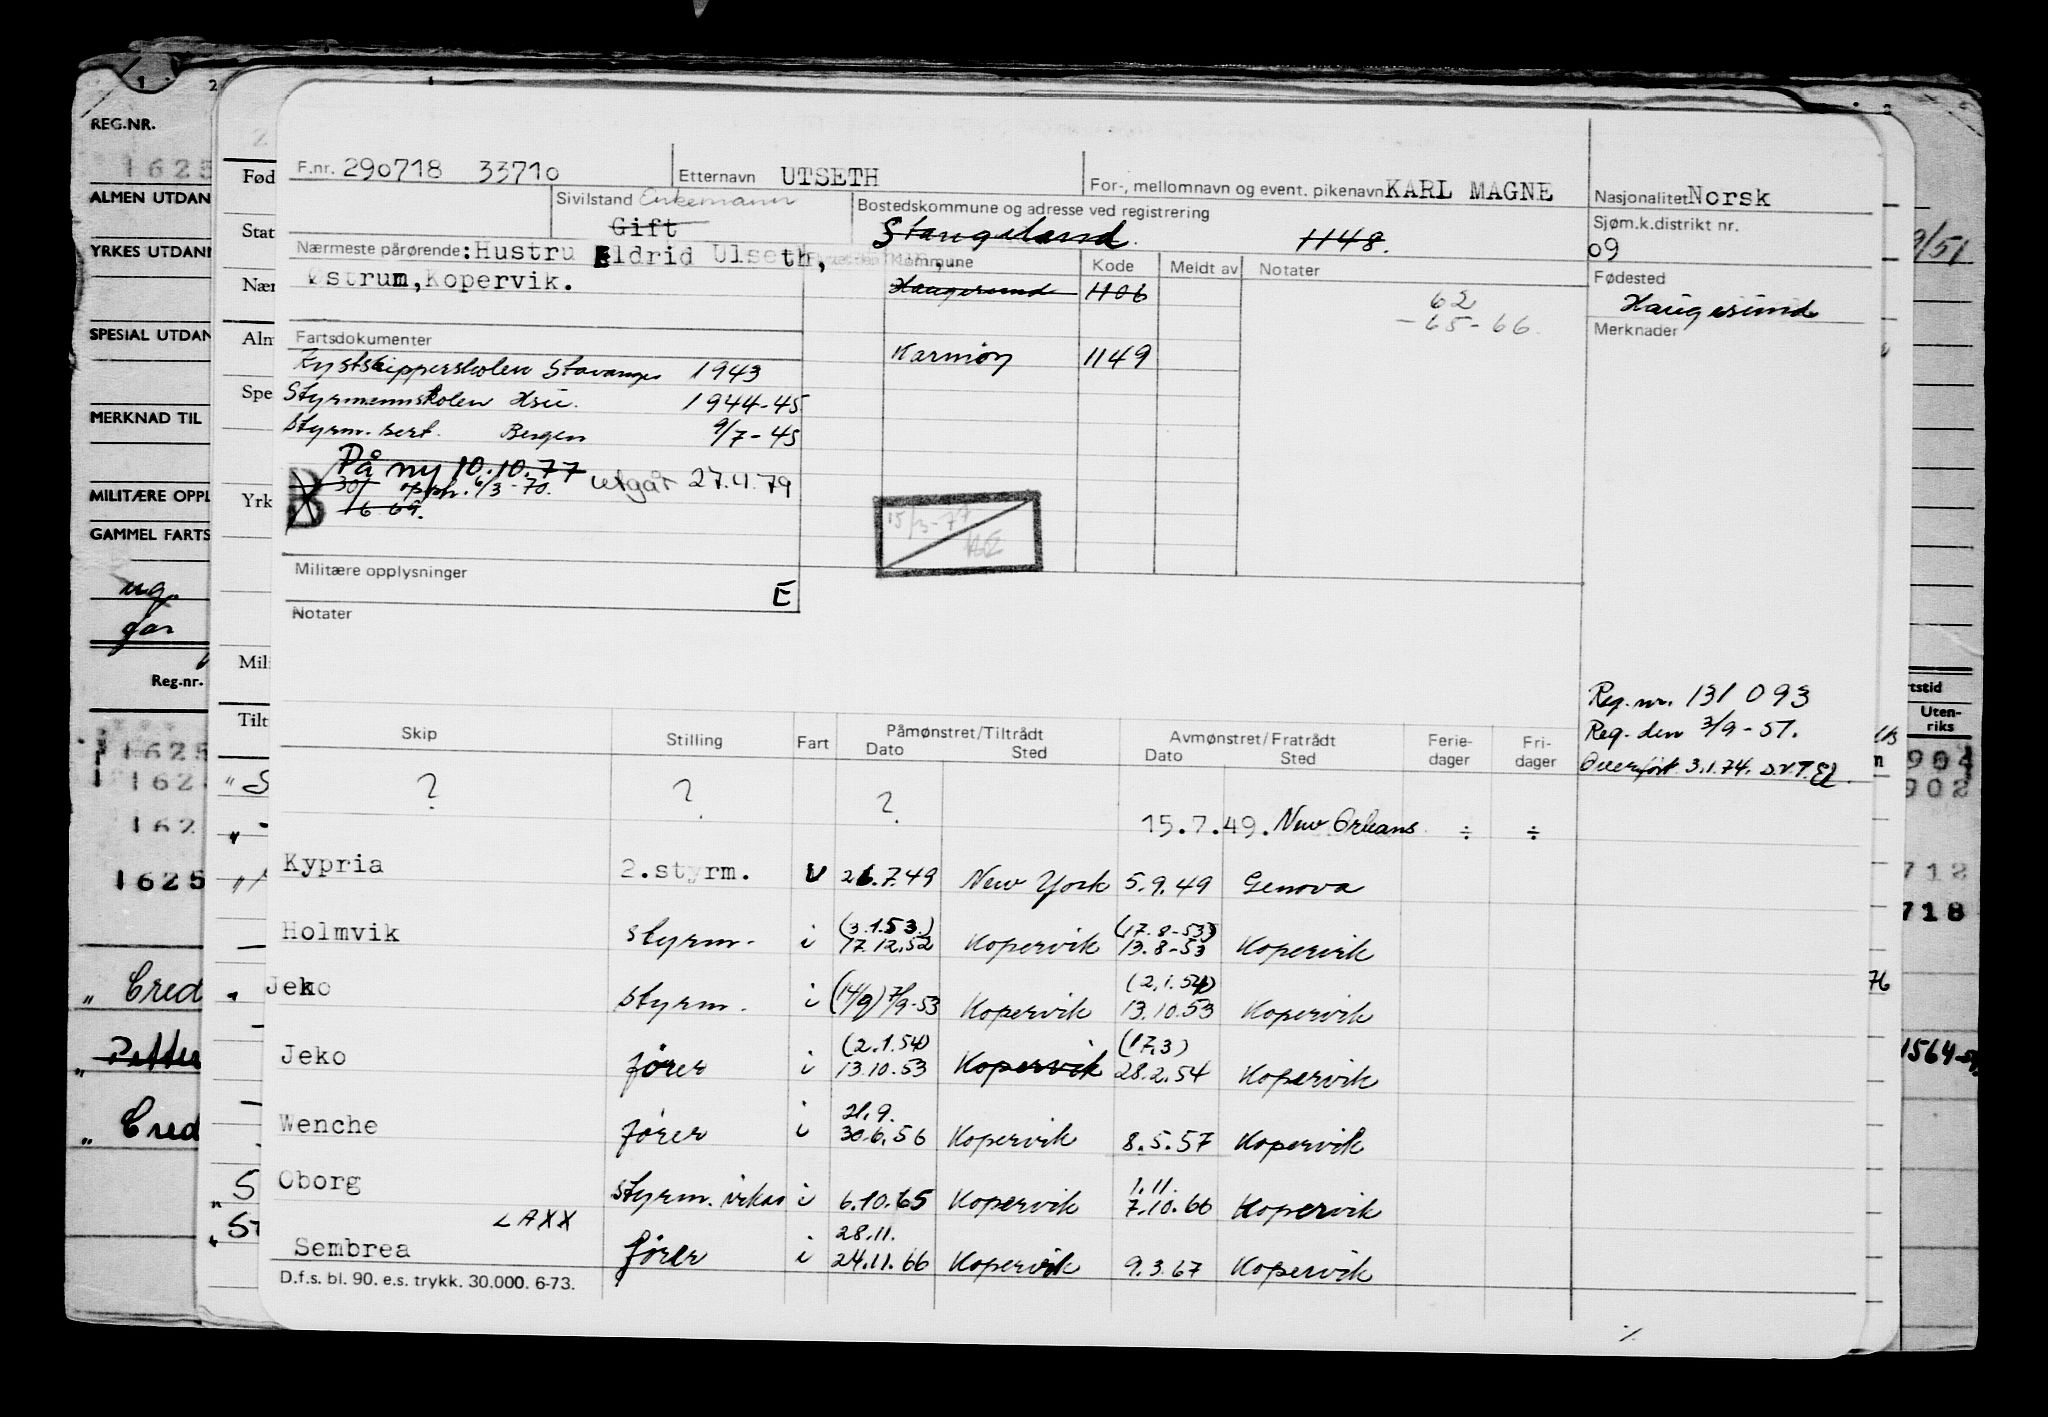 REG.NR.
1625
ALMEN UTDAN
YRKES UTDAN
SPESIAL UTDAN
MERKNAD TIL
MILITÆRE OPPL
GAMMEL FARTS
Reg-nr.
1625
162
162
1625
" Cred
" Petter
" Cred
Fød
Stat
Nær
Alm
Spe
Yrk
Mil
Tilt
F.nr. 290718 33710
Etternavn UTSETH
For-, mellomnavn og event. pikenavn KARL MAGNE
Nasjonalitet Norsk
Sivilstand Enkemann
Gift
Bostedskommune og adresse ved registrering
Stangaland 1148.
Sjøm.k.distrikt nr.
09
Nærmeste pårørende: Hustru Eldrid Ulseth,
Østrum, Kopervik.
Kommune Kode Meldt av Notater
Haugesund 1106
62
-65-66
Karmøy 1149
Fødested
Haugesund
Merknader
Fartsdokumenter
Kystskipperskolen Stavanger 1943
Styrmennskolen Hsu. 1944-45
Styrm. sert. Bergen 9/7-45
På ny 10.10.77 utgår 27.11.79
30/ opph. 6/3-70.
16 69.
B
15/3-77
Militære opplysninger
E
Notater
Reg. nr. 131 093
Reg. den 3/9-51.
Overført 3.1.74.
Skip Stilling Fart Påmønstret/Tiltrådt Dato Sted Avmønstret/Fratrådt Dato Sted Ferie-dager Fri-dager
? ? ? 15.7.49. New Orleans ÷ ÷
Kypria 2.styrm. U 26.7.49 New York 5.9.49 Genova
(3.1.53.) (17.8-53)
Holmvik Styrm. i 17.12.52 Kopervik 13.8-53 Kopervik
(2.1.54)
Jeko Styrm. i (14/9) 7/9-53 Kopervik 13.10.53 Kopervik
(2.1.54) (17.3)
Jeko fører i 13.10.53 Kopervik 28.2.54 Kopervik
21.9.
Wenche fører i 30.6.56 Kopervik 8.5.57 Kopervik
1.11.
Oborg Styrm. vikar i 6.10.65 Kopervik 7.10.66 Kopervik
LAXX 28.11.
Sembrea fører i 24.11.66 Kopervik 9.3.67 Kopervik
D.f.s. bl. 90. e.s. trykk. 30.000. 6-73.
9/51
rtstid
Uten-
riks
904
902
712
718
76
1564